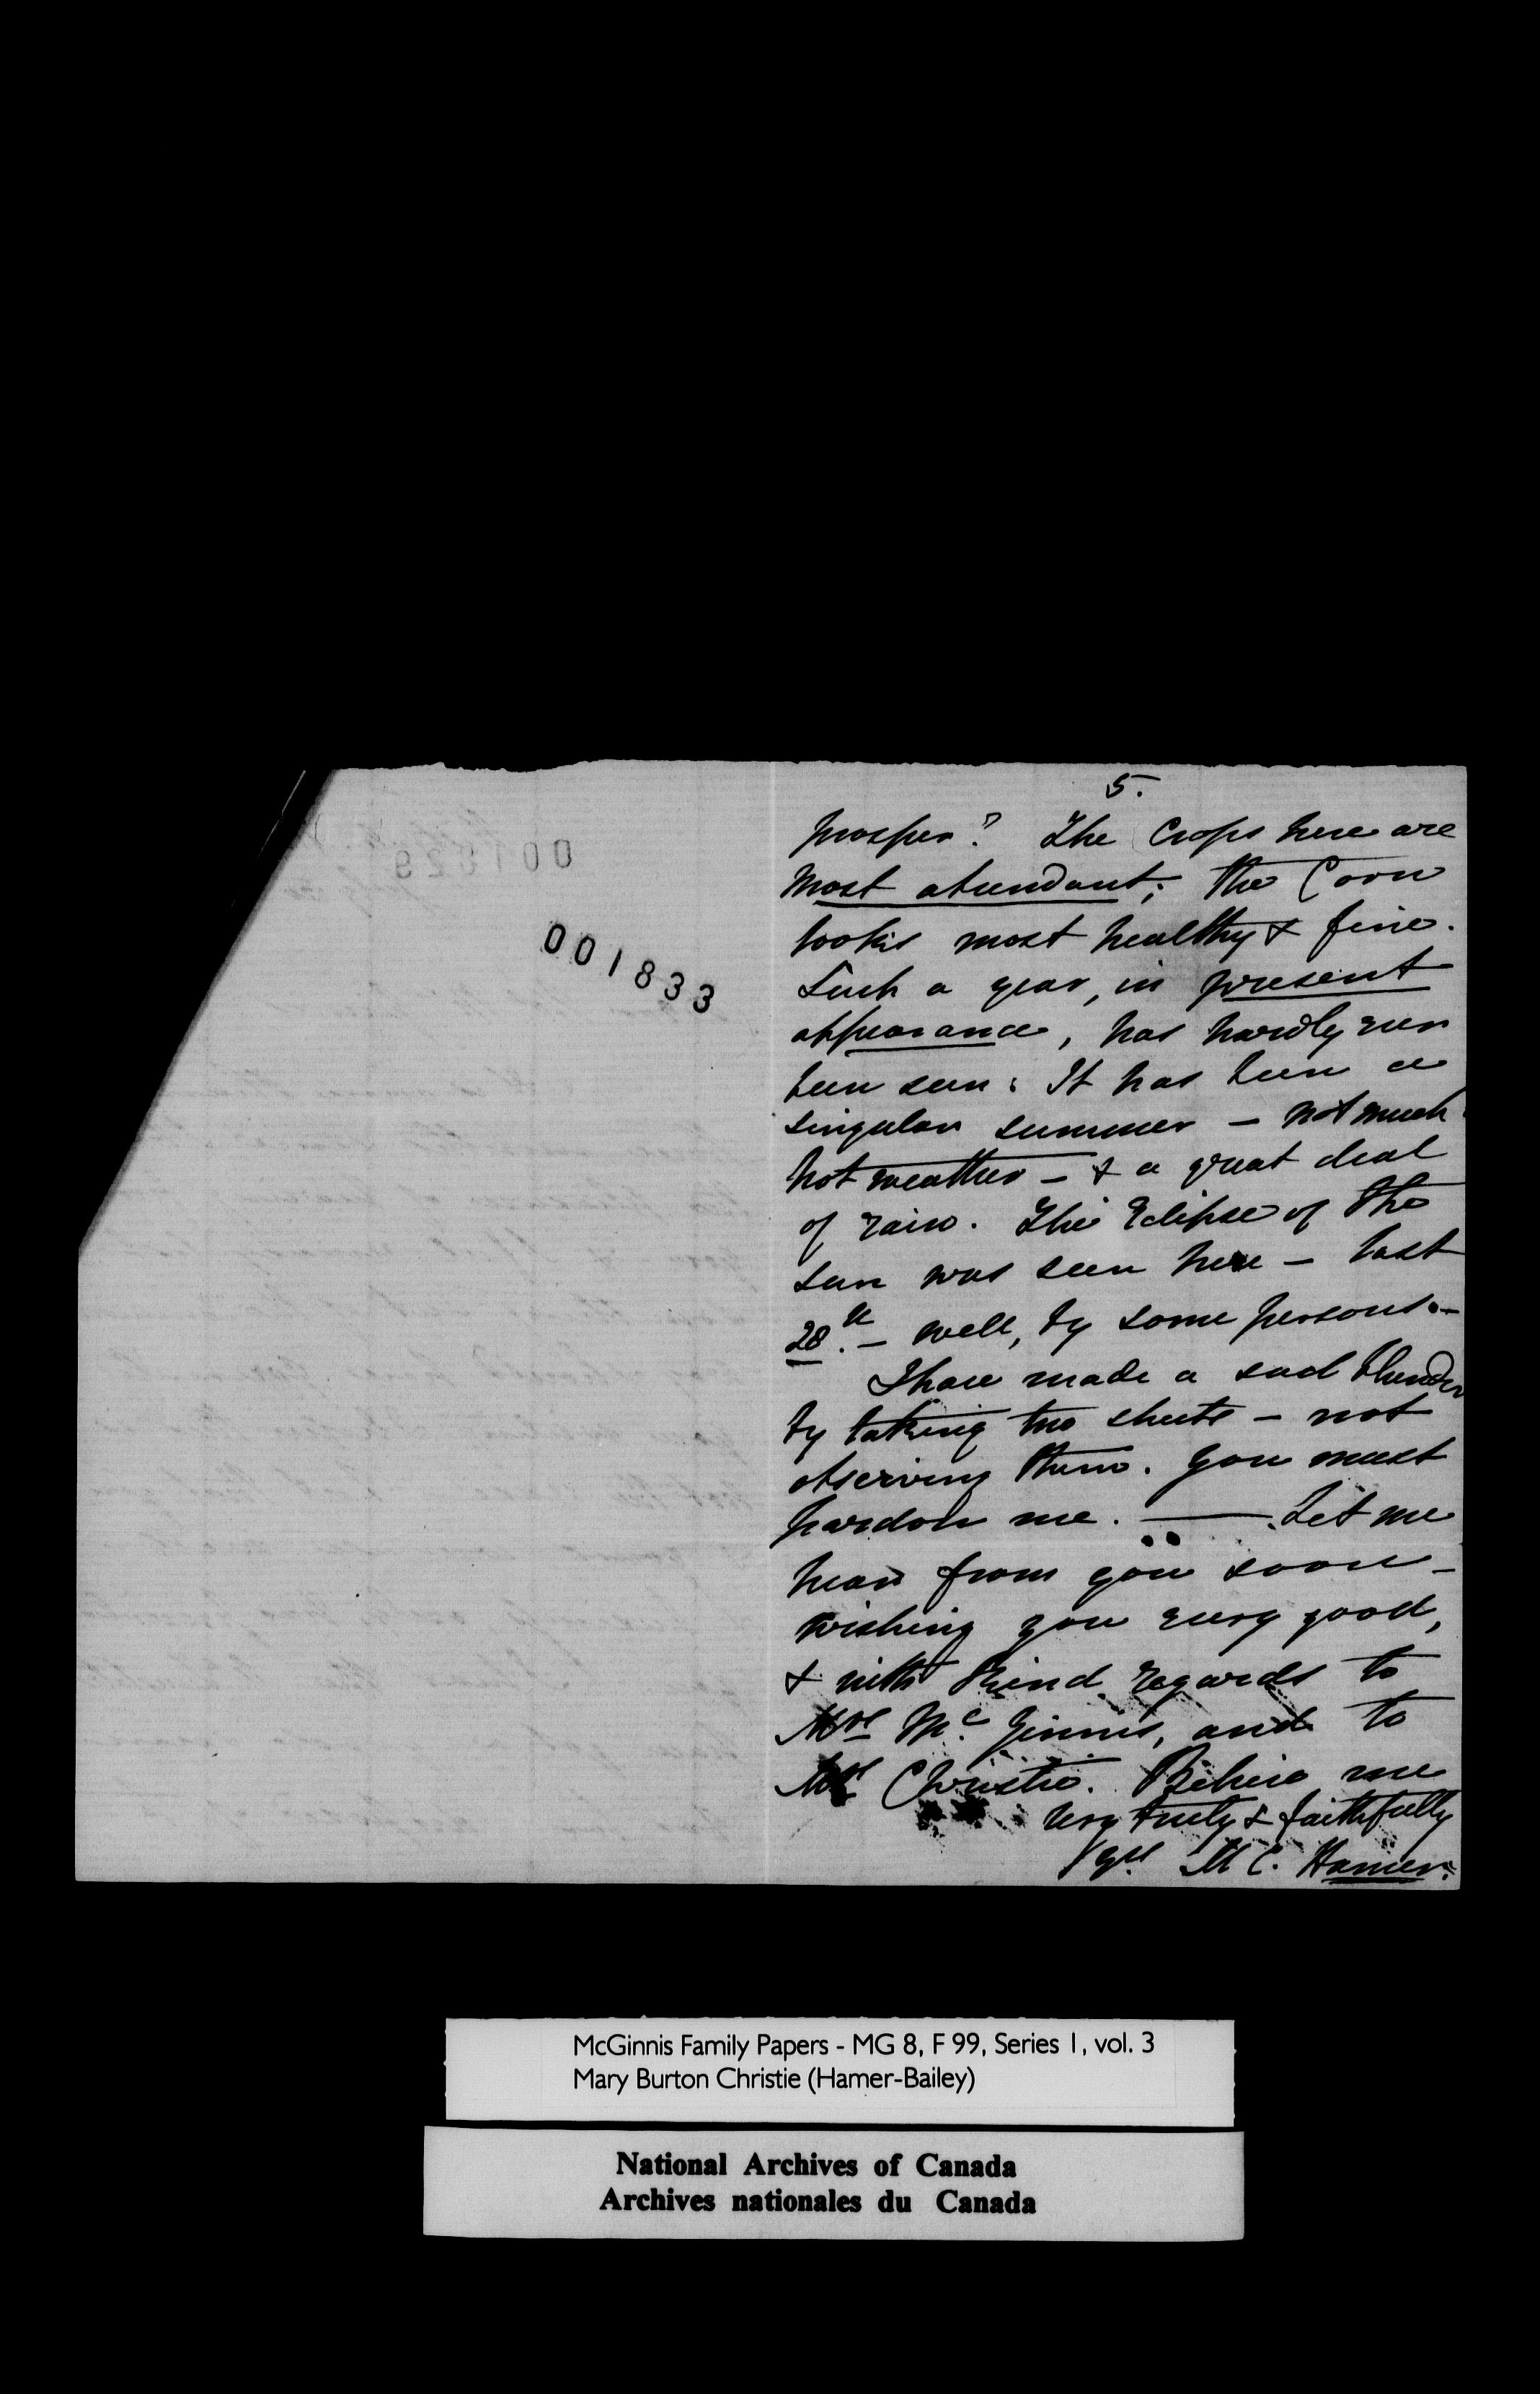 001829
001833
5.
prosper? The Crops here are
most abundant; the Corn
looks most healthy & fine.
Such a year, in present
appearance, has hardly ever
been seen: It has been a
singular summer – not much
hot weather – & a great deal
of rain. The Eclipse of the
sun was seen here – last
28th. – well, by some persons. –
I have made a sad blunder
by taking two sheets – not
observing them. You must
pardon me. — Let me
hear from you soon –
wishing you every good,
& with kind regards to
Mrs Mc. Ginnis, and to
Christie. Believe me
very truly & faithfully
yrs. M C. Hamer.
McGinnis Family Papers - MG 8, F 99, Series 1, vol. 3
Mary Burton Christie (Hamer-Bailey)
National Archives of Canada
Archives nationales du Canada